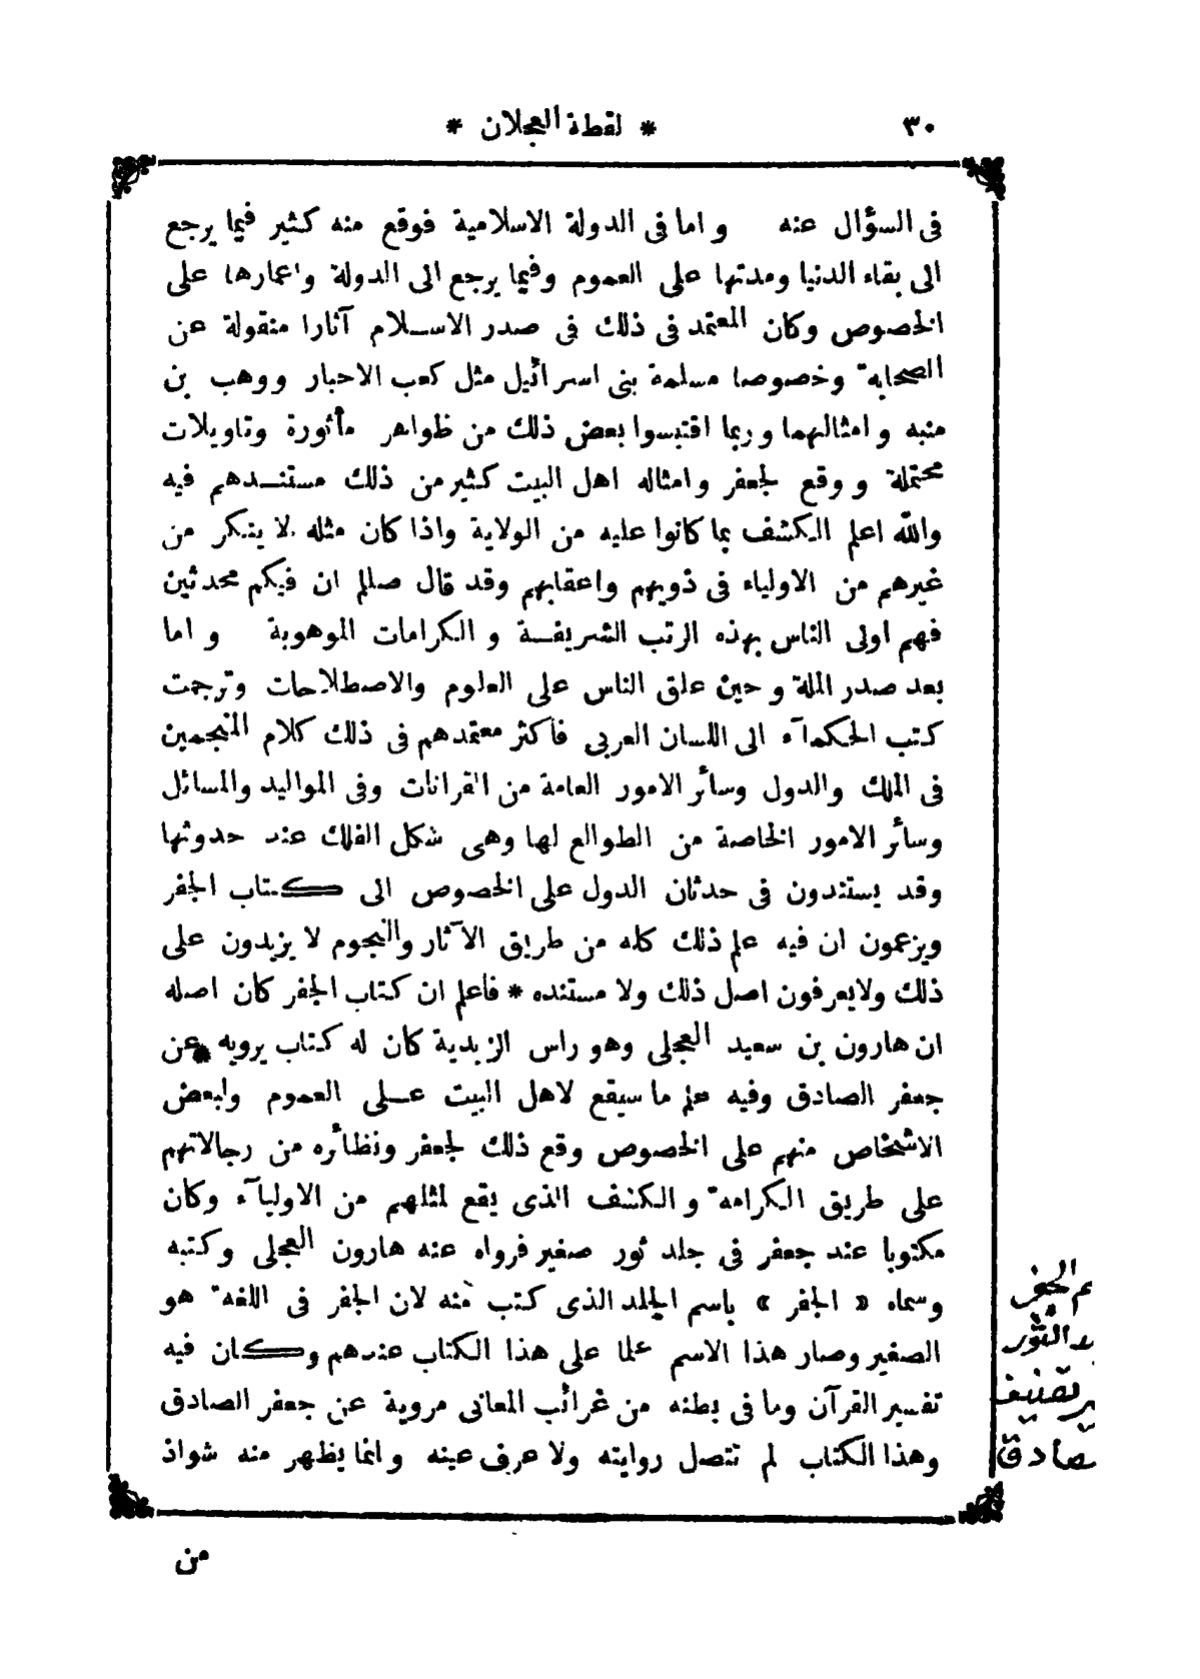 ٣٠
* لقطة العجلان *
فى السؤال عنه و اما فى الدولة الاسلامية فوقع منه كثير فيما يرجع
الى بقاء الدنيا ومدتها على العموم وفيما يرجع الى الدولة واعمارها على
الخصوص وكان المعتمد فى ذلك فى صدر الاسـلام آثارا منقولة عن
الصحابة وخصوصا مسلمة بنى اسرائيل مثل كعب الاحبار ووهب بن
منبه و امثالهما وربما اقتبسوا بعض ذلك من ظواهر مأثورة وتاويلات
محتملة و وقع لجعفر و امثاله اهل البيت كثير من ذلك مستنـدهم فيه
والله اعلم الكشف بما كانوا عليه من الولاية واذا كان مثله لا ينكر من
غيرهم من الاولياء فى ذويهم واعقابهم وقد قال صللم ان فيكم محدثين
فهم اولى الناس بهذه الرتب الشريفـة و الكرامات الموهوبة و اما
بعد صدر الملة و حين علق الناس على العلوم والاصطلاحات وترجمت
كتب الحكمآء الى اللسان العربى فأكثر معتمدهم فى ذلك كلام المنجمين
فى الملك والدول وسائر الامور العامة من القرانات وفى المواليد والمسائل
وسائر الامور الخاصة من الطوالع لها وهى شكل الفلك عند حدوثها
وقد يستندون فى حدثان الدول على الخصوص الى كـتاب الجفر
ويزعمون ان فيه علم ذلك كله من طريق الآثار والنجوم لا يزيدون على
ذلك ولايعرفون اصل ذلك ولا مستنده * فاعلم ان كتاب الجفر كان اصله
ان هارون بن سعيد العجلى وهو راس الزيدية كان له كتاب يرويه عن
جعفر الصادق وفيه علم ما سيقع لاهل البيت عـلى العموم ولبعض
الاشخاص منهم على الخصوص وقع ذلك لجعفر ونظائره من رجالاتهم
على طريق الكرامة و الكشف الذى يقع لمثلهم من الاوليآء وكان
مكتوبا عند جعفر فى جلد ثور صغير فرواه عنه هارون العجلى وكتبه
وسماه « الجفر » باسم الجلد الذى كتب منه لان الجفر فى اللغة هو
الصغير وصار هذا الاسم علما على هذا الكتاب عندهم وكـان فيه
تفسير القرآن وما فى بطنه من غرائب المعانى مروية عن جعفر الصادق
وهذا الكتاب لم تتصل روايته ولا عرف عينه وانما يظهر منه شواذ
الجفر
الثور
تصنيف
صادق
من